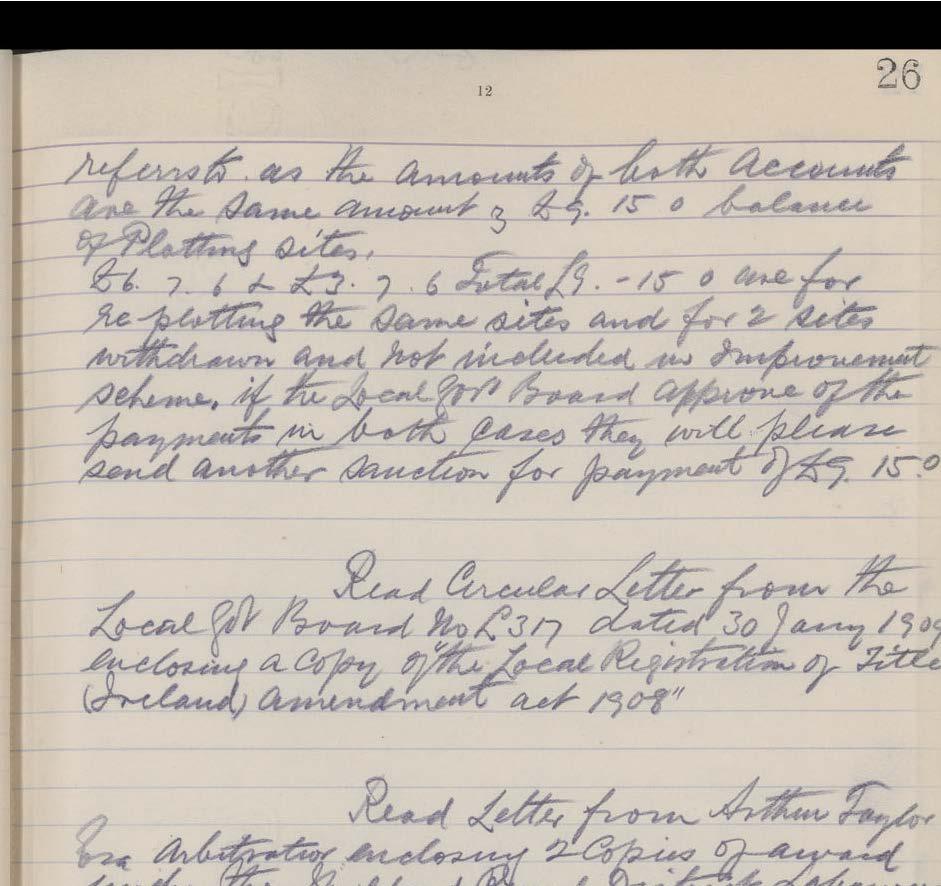 26
12
referrs to as the amounts of both accounts
are the same amount £9. 15 0 balance
of Plotting sites.
£6. 7. 6 & £3. 7. 6 Total £9. - 15 0 are for
re plotting the same sites and for 2 sites
withdrawn and not included in Improvement
scheme, if the Local Govt Board approve of the
payments in both cases they will please
send another sanction for payment of £9. 15. 0
Read Circular Letter from the
Local Govt Board No L317 dated 30 Jany 1909
enclosing a copy of "the Local Registration of Title
(Ireland) amendment act 1908"
Read Letter from Arthur Taylor
Esq Arbitrator enclosing 2 Copies of award